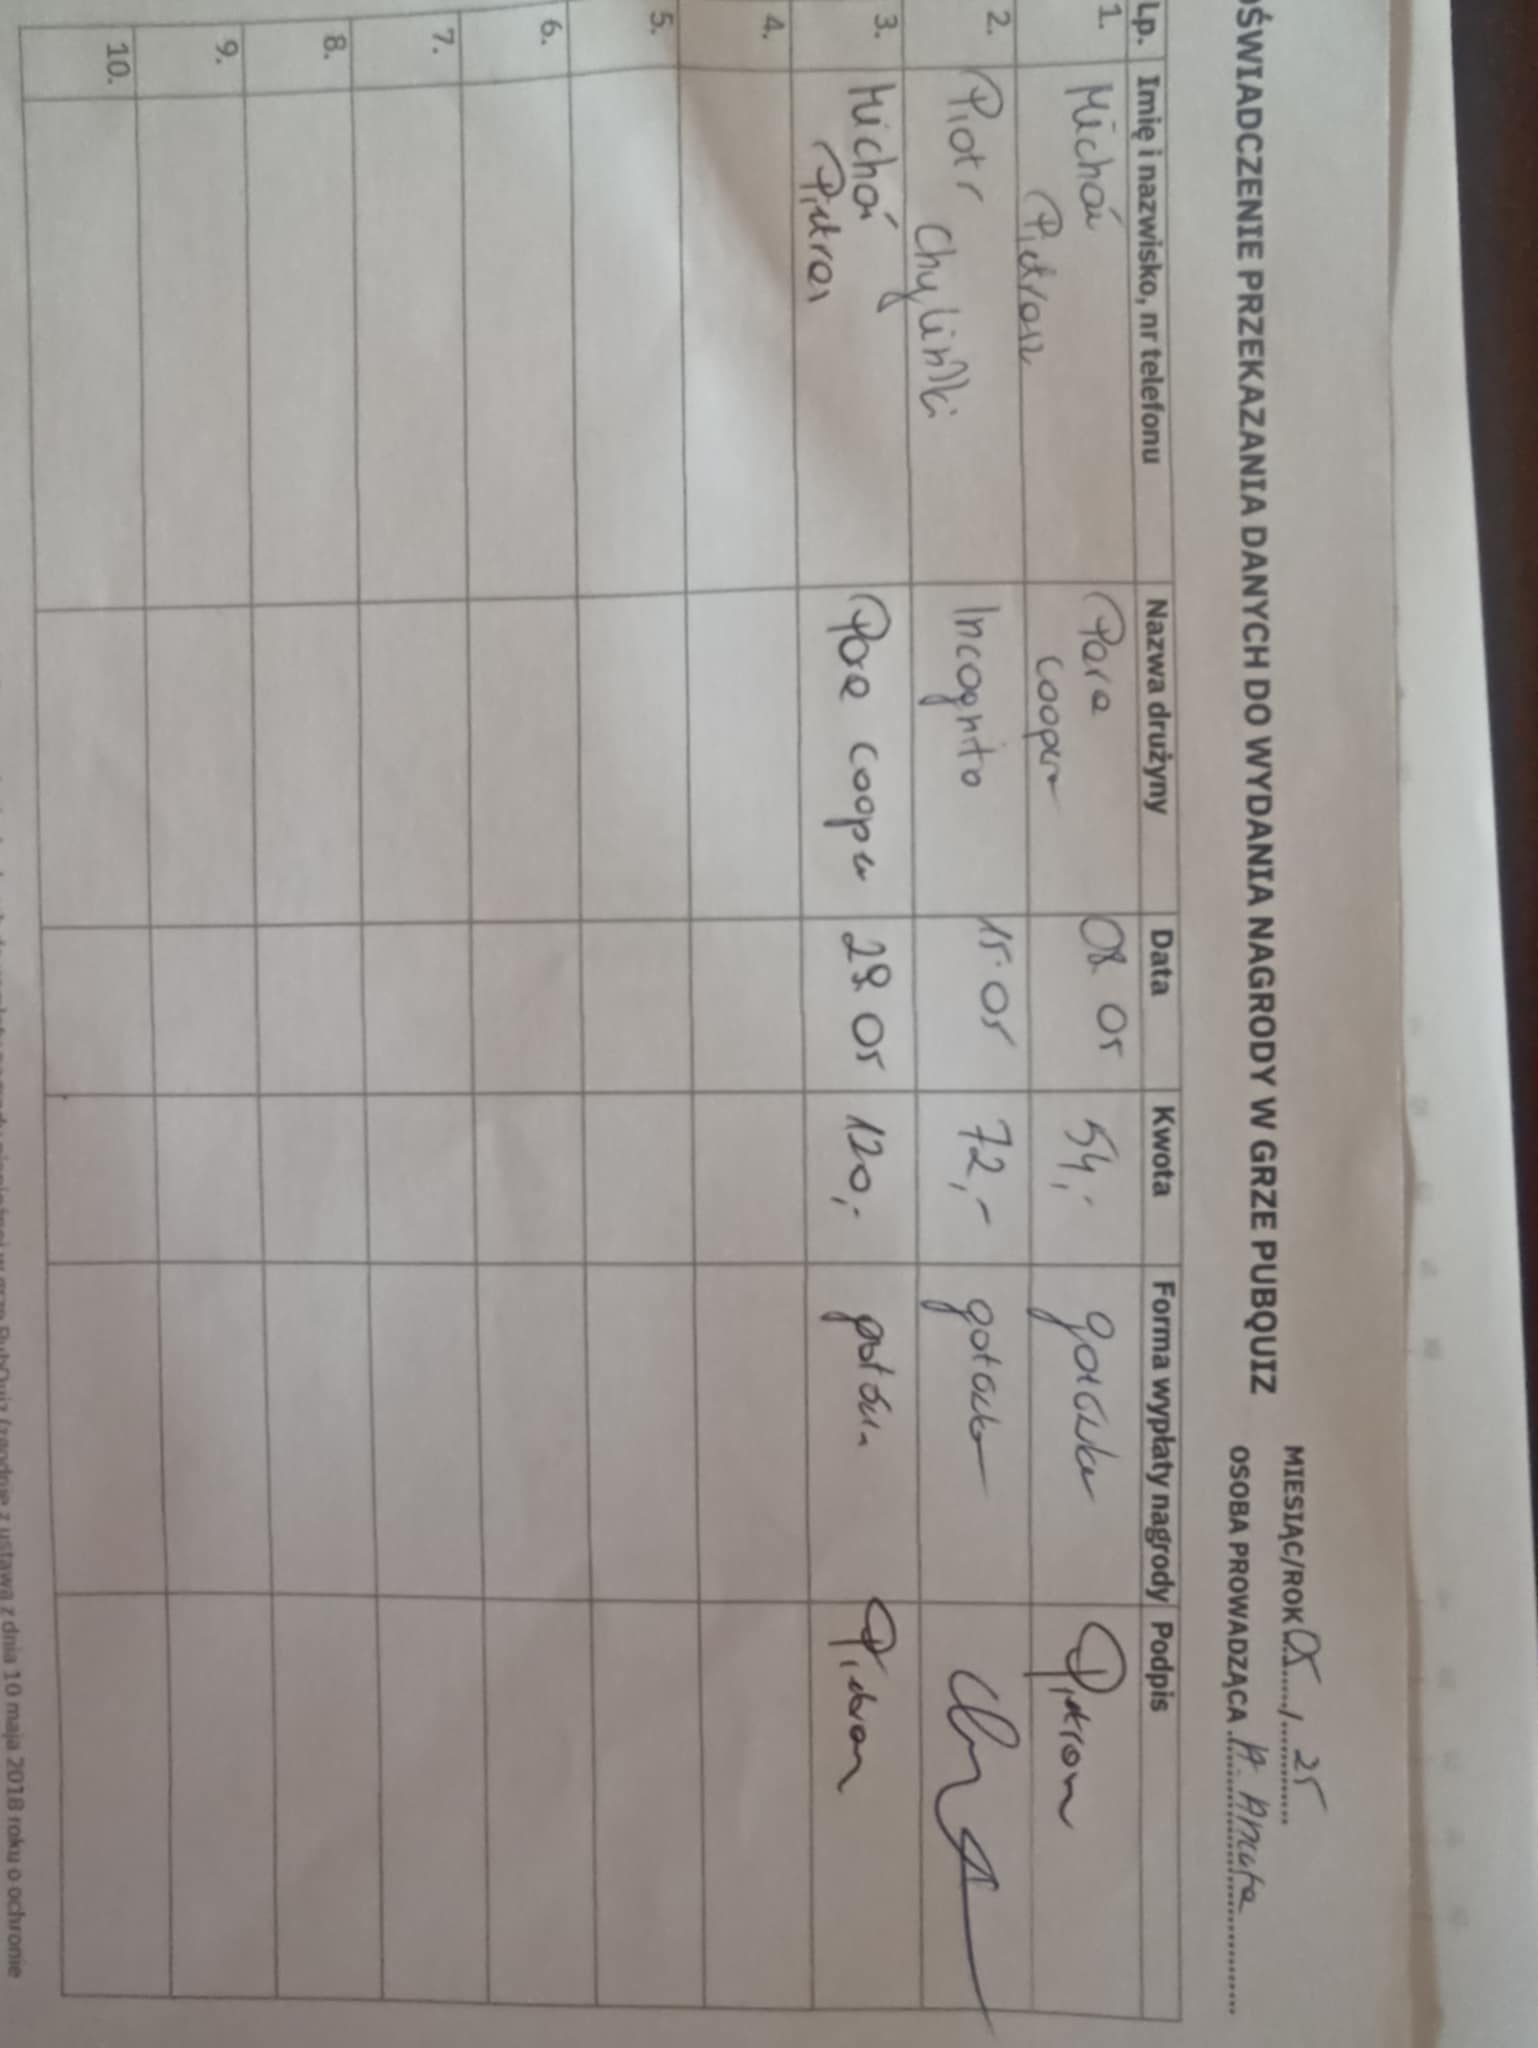 OŚWIADCZENIE PRZEKAZANIA DANYCH DO WYDANIA NAGRODY W GRZE PUBQUIZ
MIESIĄC/ROK 05 / 25
OSOBA PROWADZĄCA A.
Lp. Imię i nazwisko, nr telefonu Nazwa drużyny Data Kwota Forma wypłaty nagrody Podpis
1. Michał Pietrasz Para Cooper 08.05 54,- gotówka
2. Piotr Chyliński Incognito 15.05 72,- gotówka
3. Michał Pietras Para Cooper 29.05 120,- gotówka
4.
5.
6.
7.
8.
9.
10.
w grze PubQuiz (zgodnie z ustawą z dnia 10 maja 2018 roku o ochronie